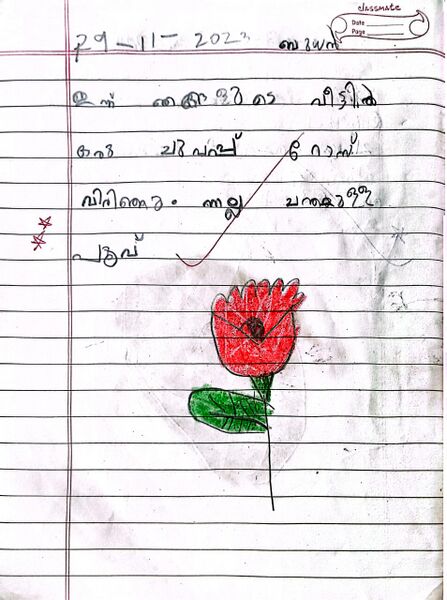 classmate
Date
Page
29-11-2023 ബുധൻ
ഇന്ന് ഞങ്ങളുടെ വീട്ടിൽ
ഒരു ചുവപ്പ് റോസ്
വിരിഞ്ഞു. നല്ല ചന്തമുള്ള
പൂവ്